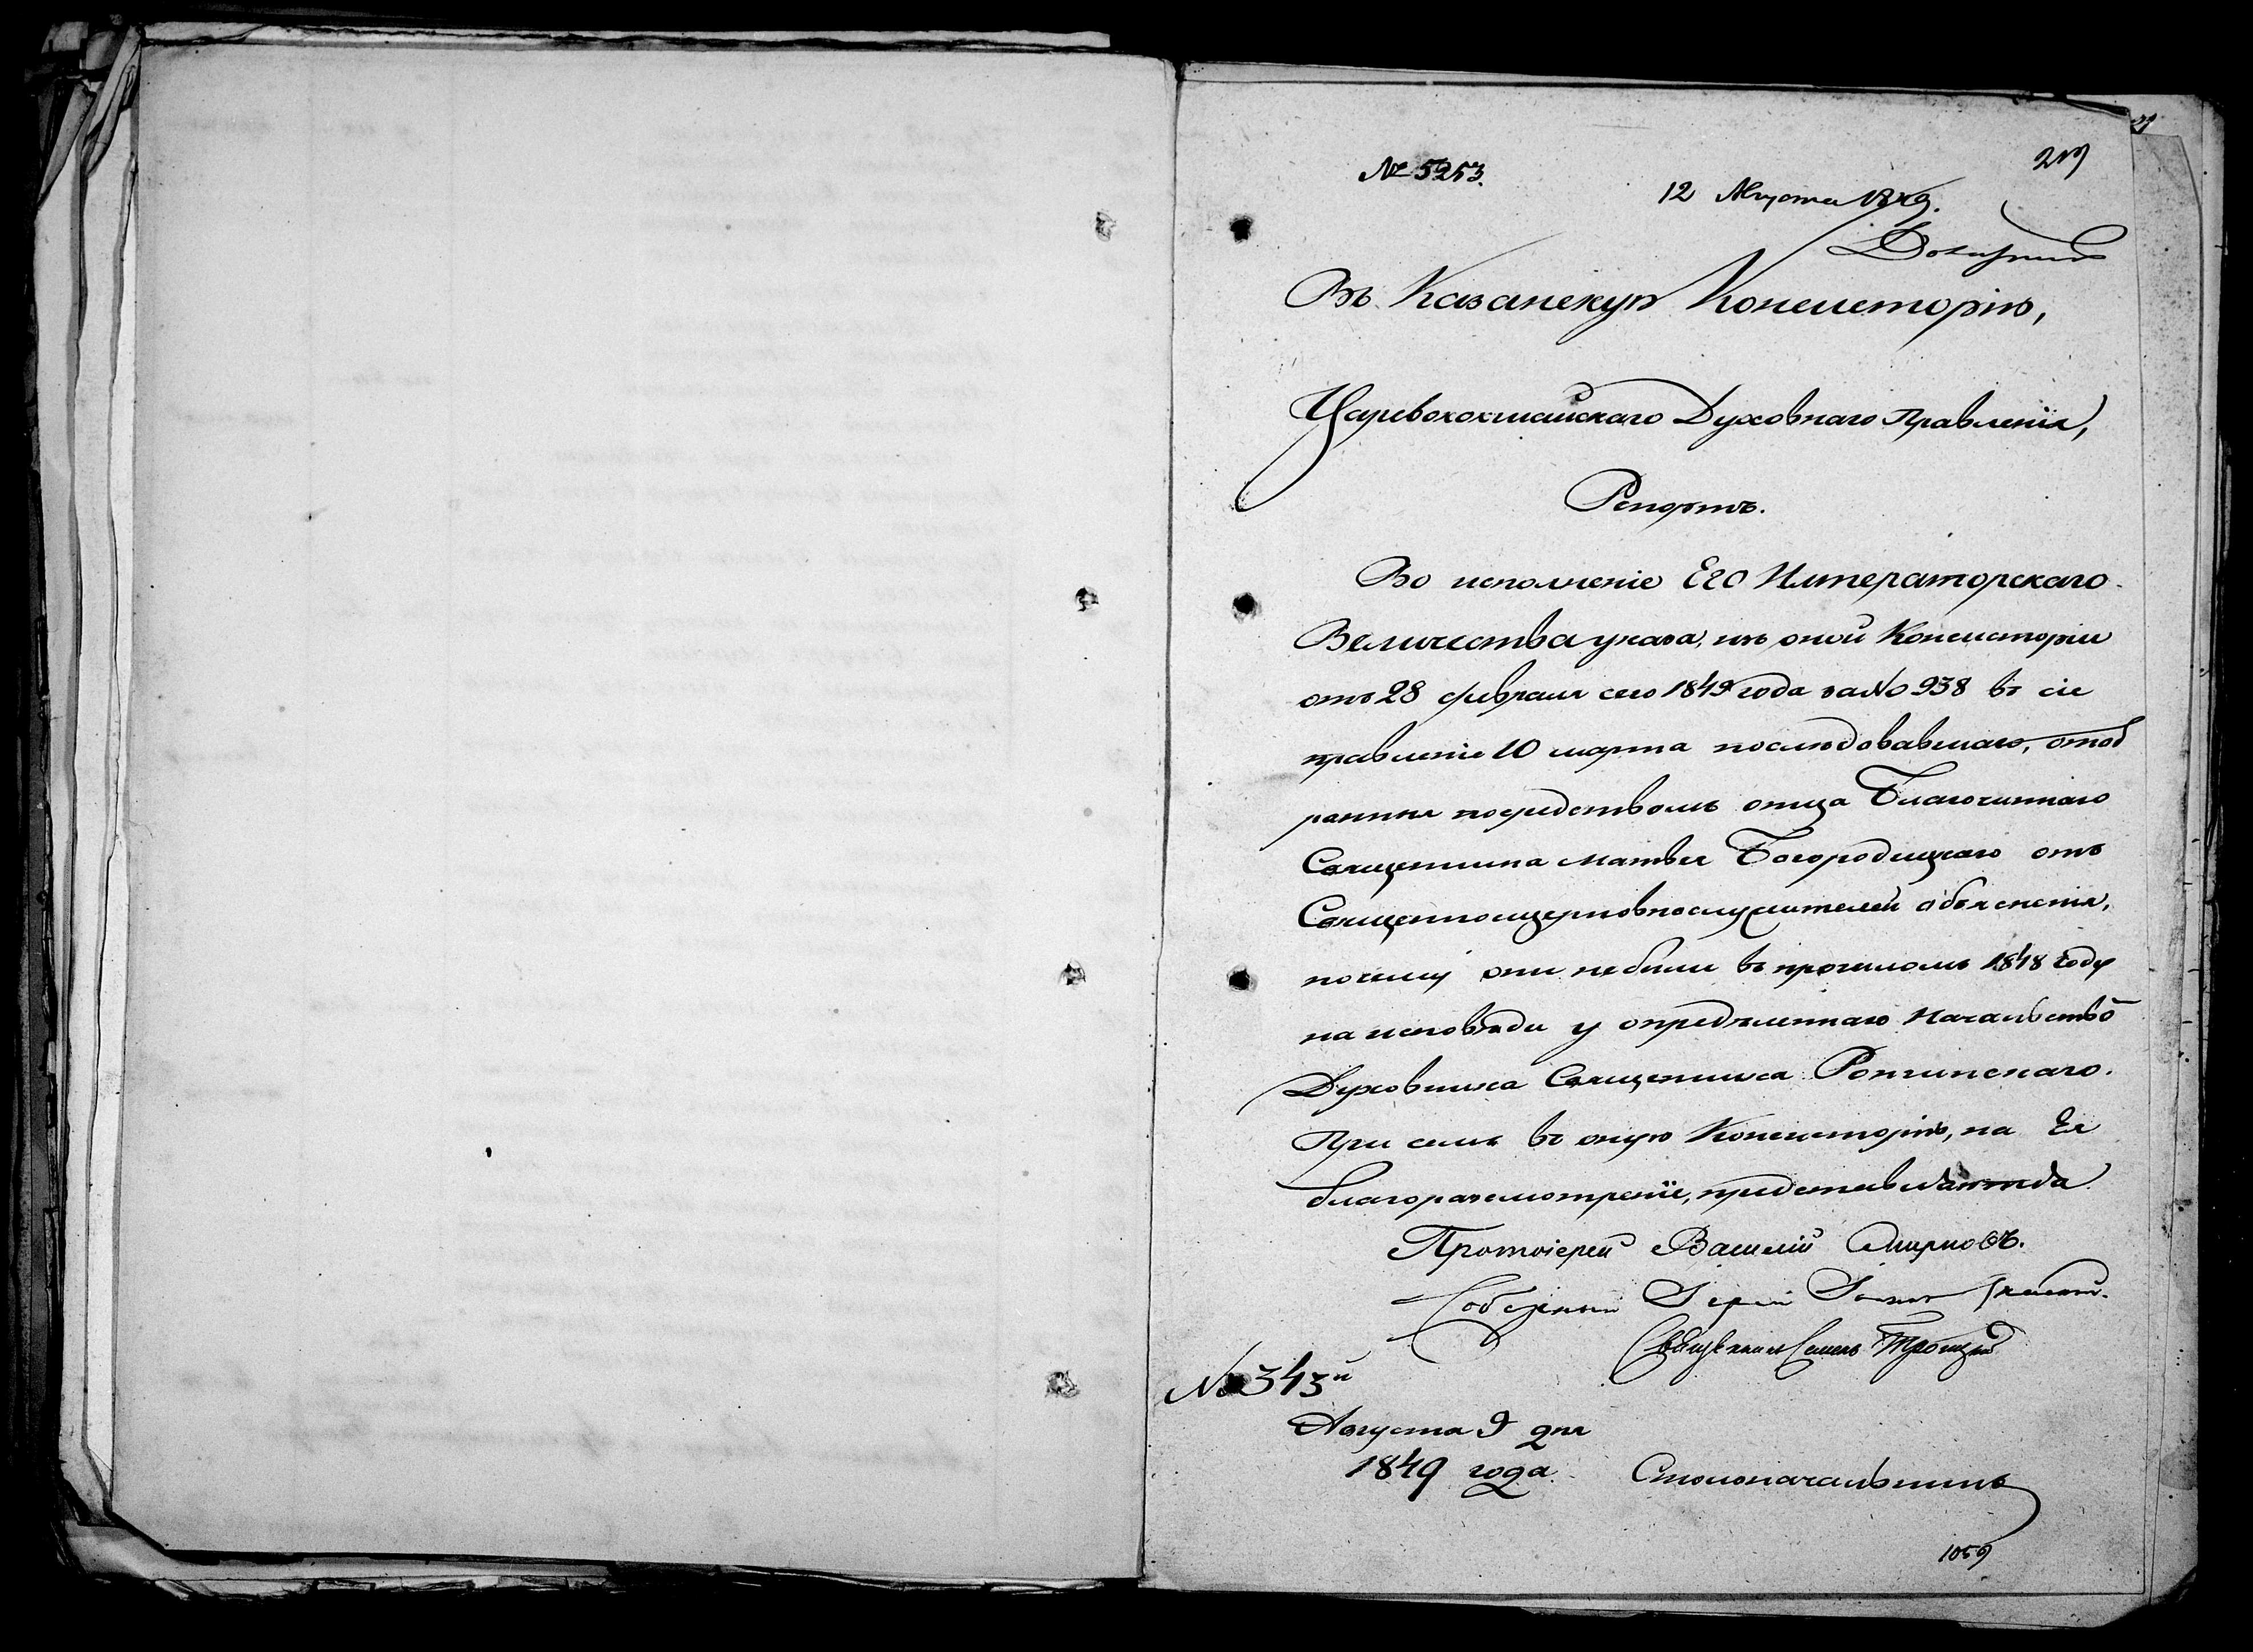 № 5253.
219
12 Августа 1849.
Въ Казанскую Консисторію,
Царевококшайскаго Духовнаго Правленія,
Репортъ.
Во исполненіе Его Императорскаго
Величества указа, изъ оной Консисторіи
отъ 28 февраля сего 1849 года за No 938 въ сіе
правленіе 10 марта послѣдовавшаго, отоб
ранныя посредствомъ отца Благочиннаго
Священника Матвея Богородицкаго отъ
Священноцерковнослужителей объясненія,
почему они небыли въ прошломъ 1848 году
на исповѣди у опредѣленнаго Начальствō
Духовника Священника Ронгинскаго.
При семъ въ оную Консисторію, на Ея
благоразсмотреніе, представляются
Протоіерей Василій Смирновъ.
Соборный Іерей
Священникъ Симеонъ Троицкій
№ 343й
Августа 9 дня
1849 года.
Столоначальникъ
1059